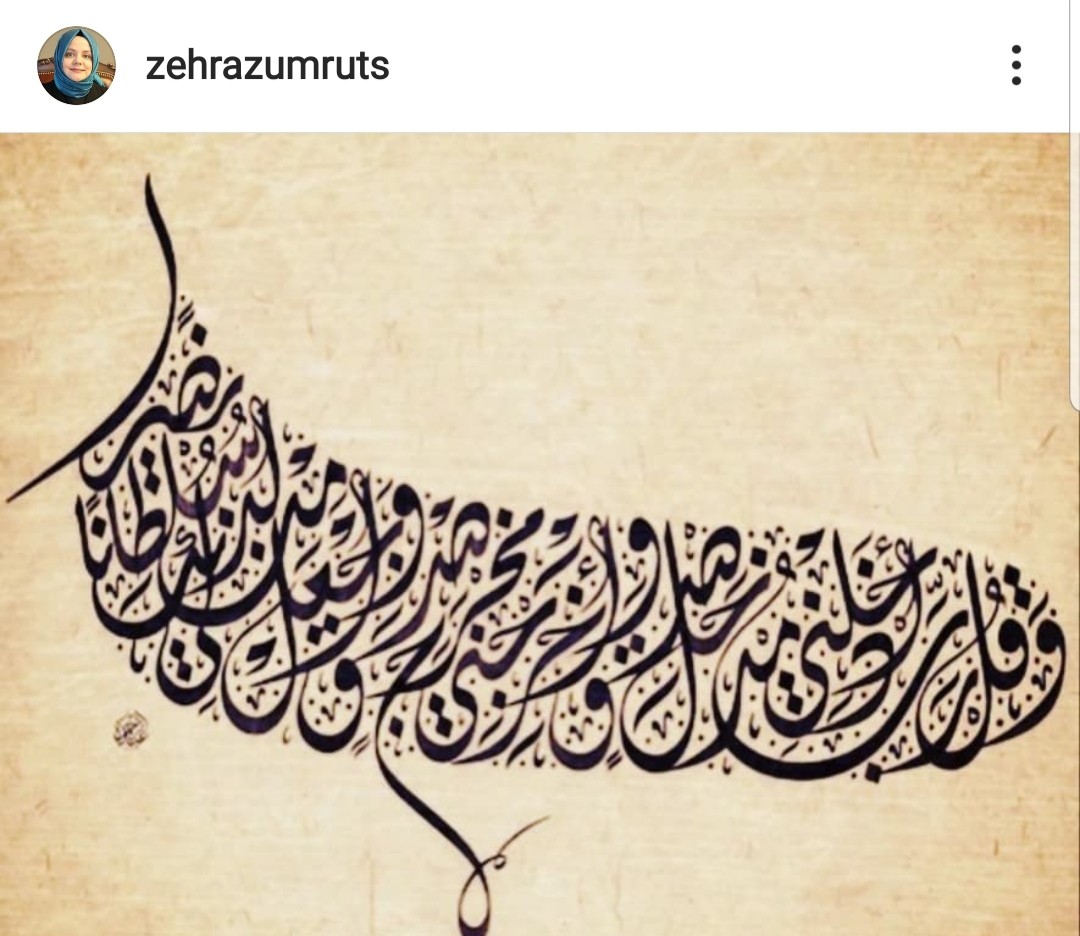 zehrazumruts
وَقُلْ رَبِّ أَدْخِلْنِي مُدْخَلَ صِدْقٍ وَأَخْرِجْنِي مُخْرَجَ صِدْقٍ وَاجْعَلْ لِي مِنْ لَدُنْكَ سُلْطَانًا نَصِيرًا